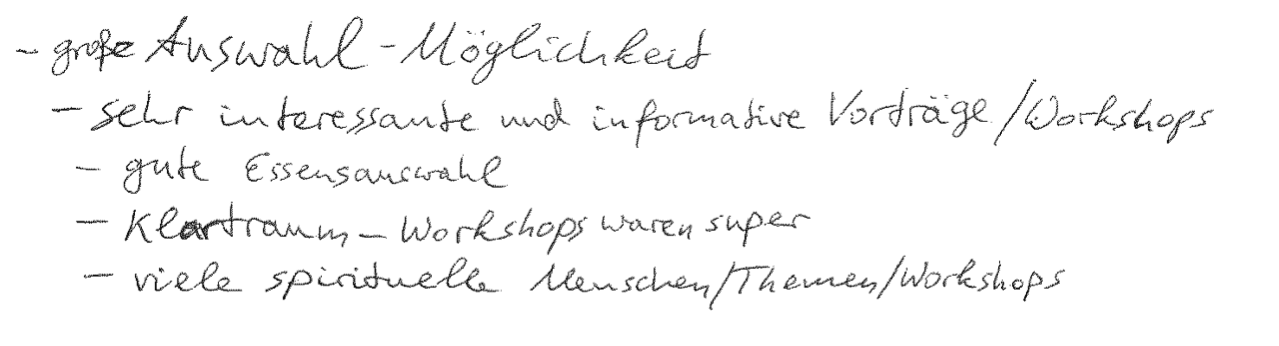 - große Auswahl-Möglichkeit
- sehr interessante und informative Vorträge/Workshops
- gute Essensauswahl
- Klartraum-Workshops waren super
- viele spirituelle Menschen/Themen/Workshops